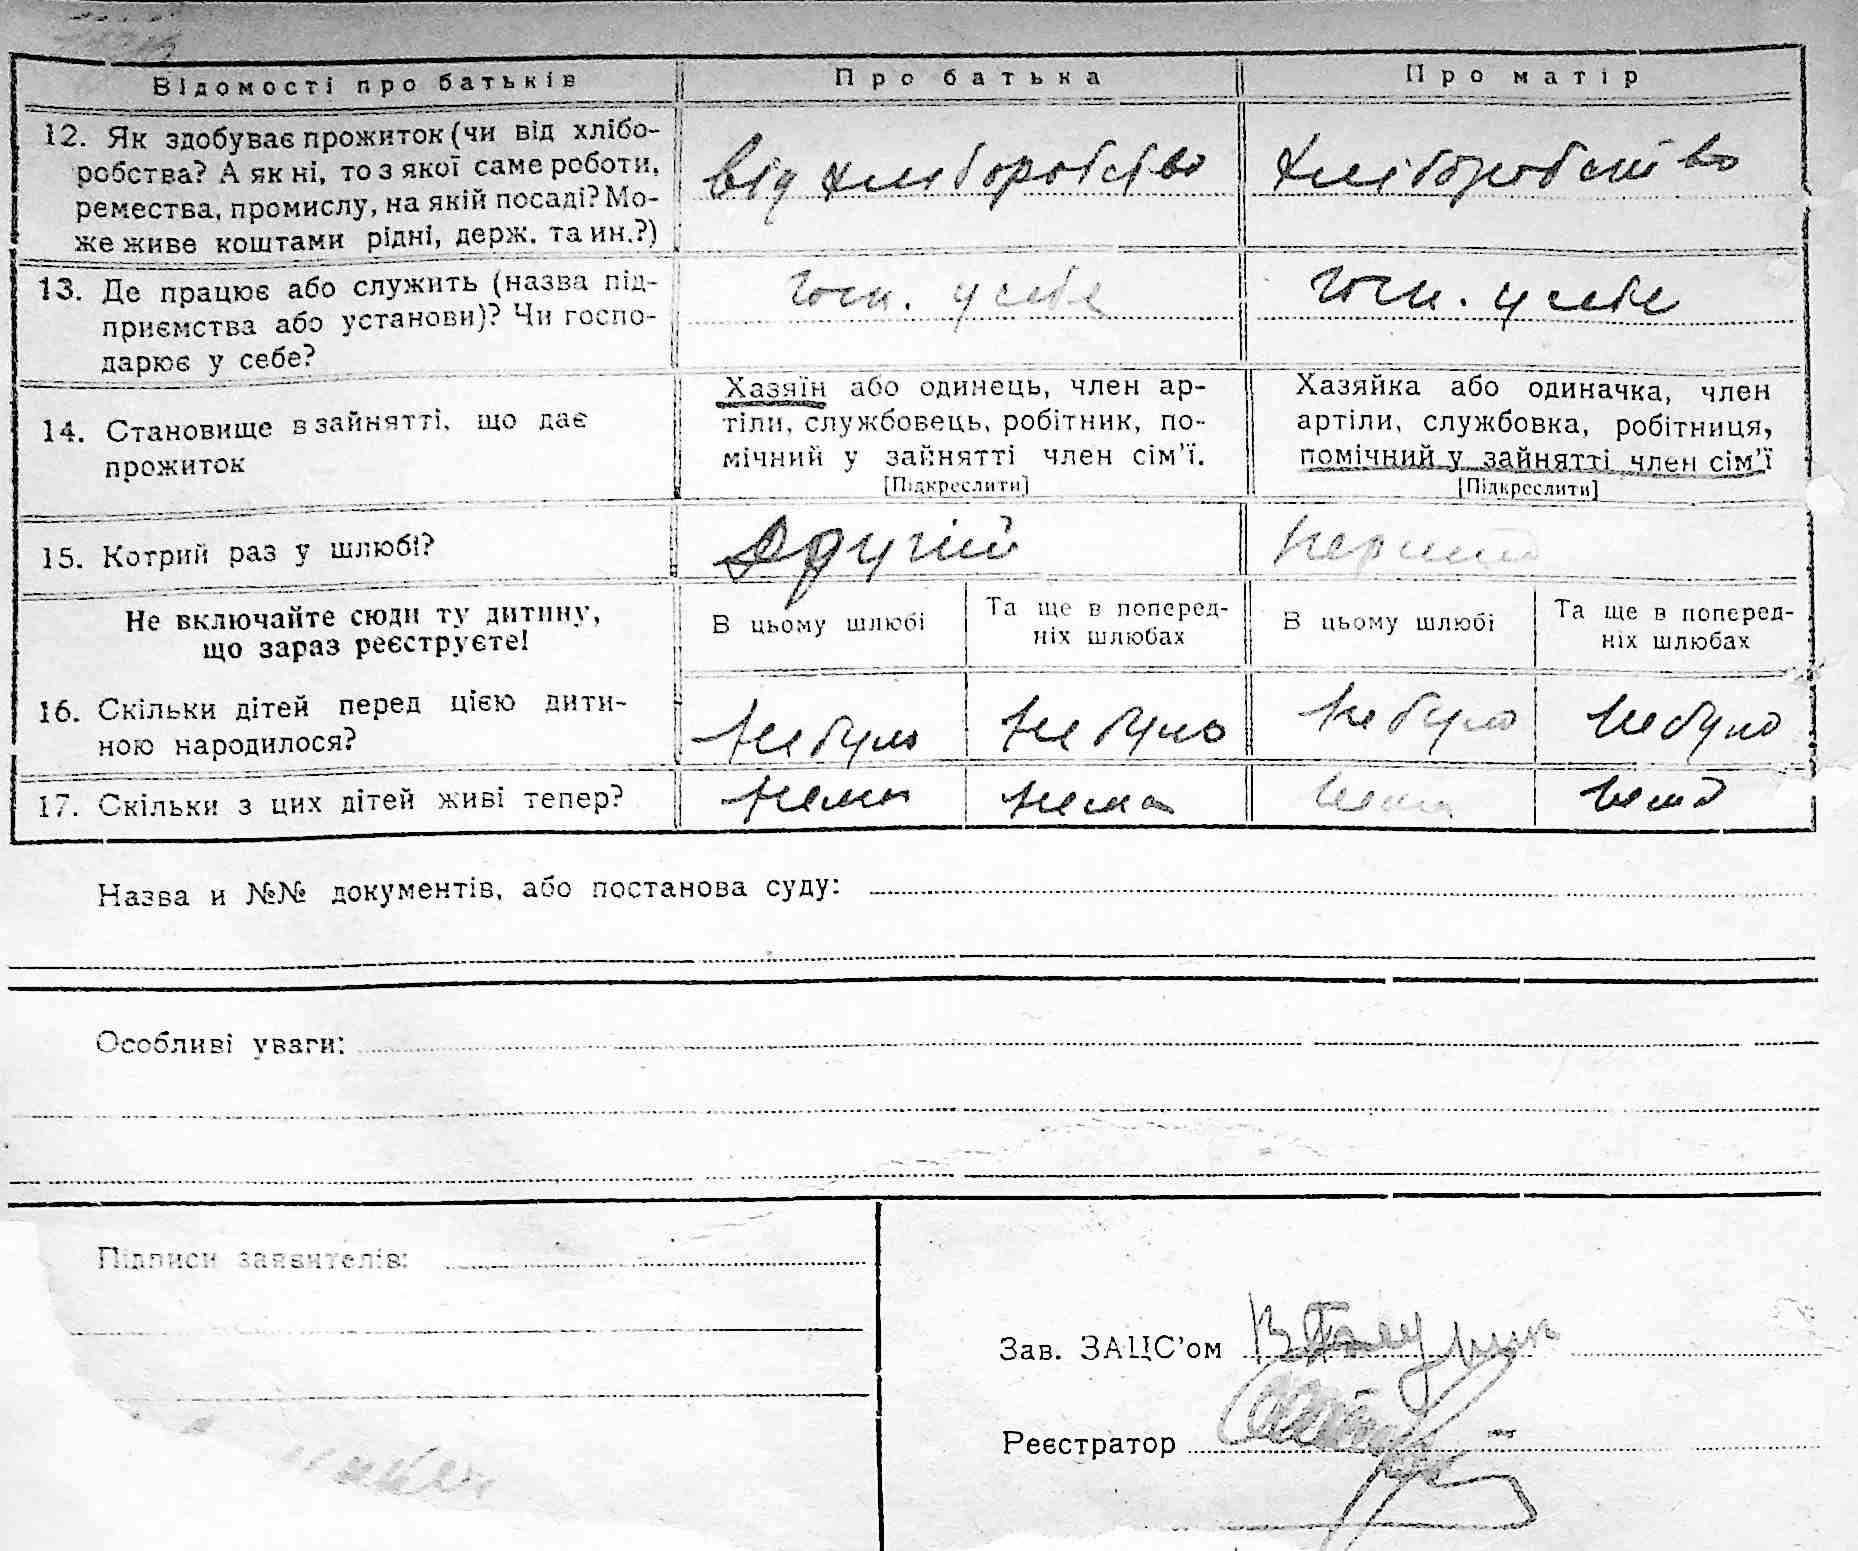 Відомості про батьків
Про батька
Про матір
12. Як здобуває прожиток (чи від хлібо-
робства? А як ні, то з якої саме роботи,
ремества, промислу, на якій посаді? Мо-
же живе коштами рідні, держ. та ин.?)
від хліборобство
хліборобство
13. Де працює або служить (назва під-
приємства або установи)? Чи госпо-
дарює у себе?
госп. у себе
госп. у себе
14. Становище в зайнятті, що дає
прожиток
Хазяїн або одинець, член ар-
тіли, службовець, робітник, по-
мічний у зайнятті член сім'ї.
[Підкреслити]
Хазяйка або одиначка, член
артіли, службовка, робітниця,
помічний у зайнятті член сім'ї
[Підкреслити]
15. Котрий раз у шлюбі?
другий
перший
Не включайте сюди ту дитину,
що зараз реєструєте!
В цьому шлюбі
Та ще в поперед-
ніх шлюбах
В цьому шлюбі
Та ще в поперед-
ніх шлюбах
16. Скільки дітей перед цією дити-
ною народилося?
не було
не було
не було
не було
17. Скільки з цих дітей живі тепер?
нема
нема
нема
нема
Назва и №№ документів, або постанова суду:
Особливі уваги:
Підписи заявителів:
Зав. ЗАЦС'ом
Реєстратор